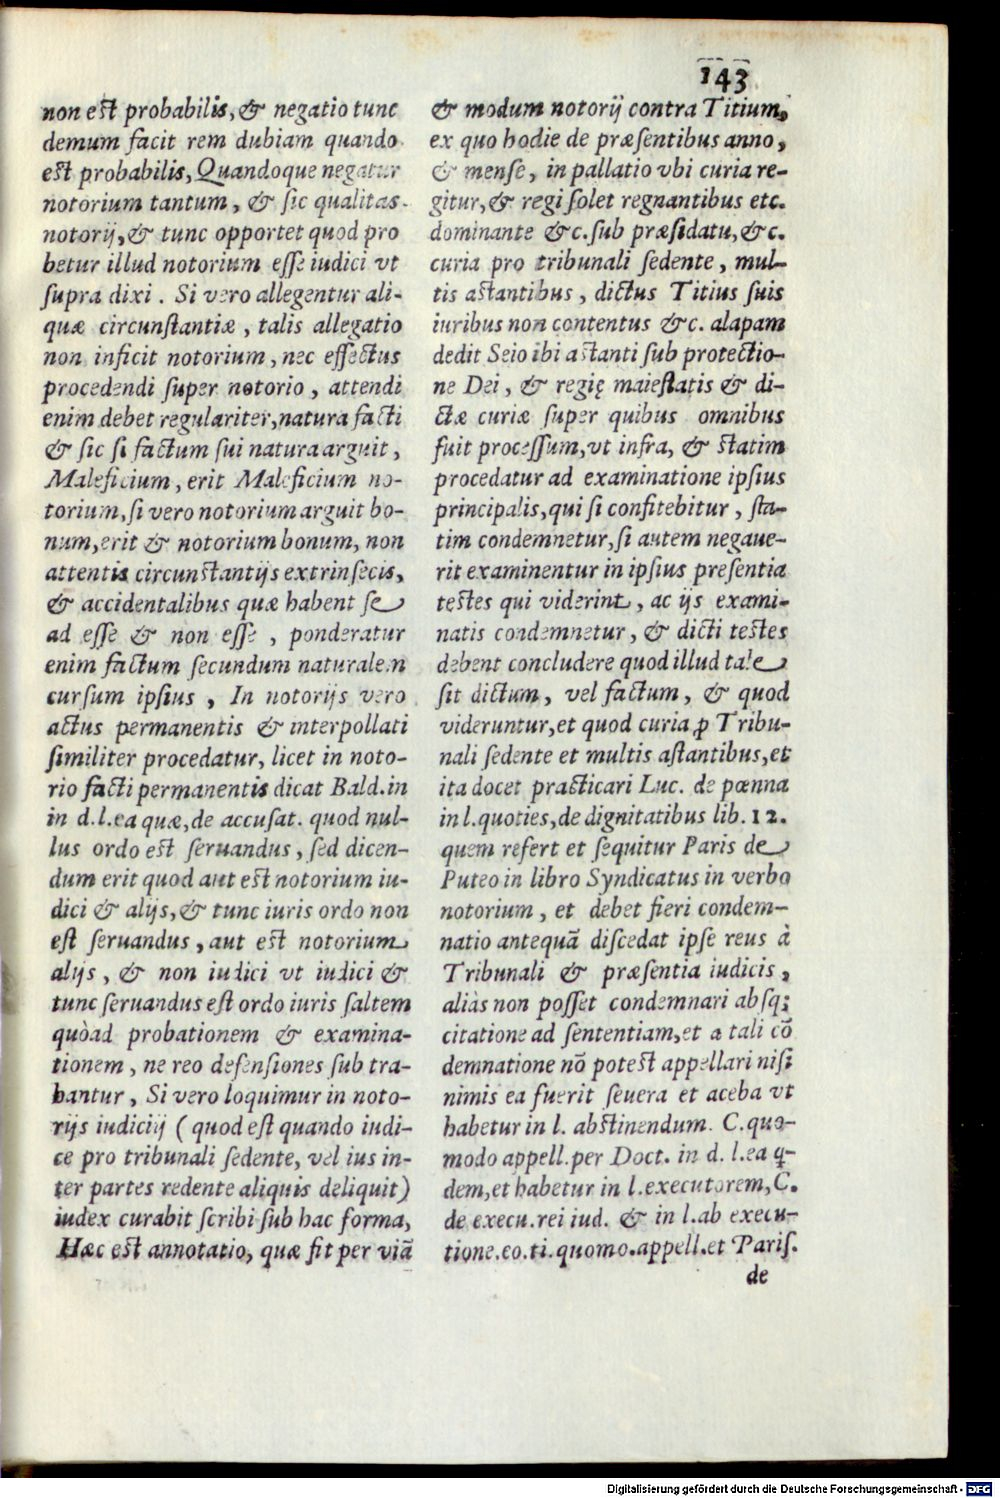 143
non eſt probabilis, & negatio tunc
demum facit rem dubiam quando
eſt probabilis, Quandoque negatur
notorium tantum, & ſic qualitas
notorij, & tunc opportet quod pro
betur illud notorium eſſe iudici vt
ſupra dixi. Si vero allegentur ali-
quæ circunſtantiæ, talis allegatio
non inficit notorium, nec effectus
procedendi ſuper notorio, attendi
enim debet regulariter, natura facti
& ſic ſi factum ſui natura arguit,
Maleficium, erit Maleficium no-
torium, ſi vero notorium arguit bo-
num, erit & notorium bonum, non
attentis circunſtantijs extrinſecis,
& accidentalibus quæ habent ſe
ad eſſe & non eſſe, ponderatur
enim factum secundum naturalem
curſum ipſius, In notorijs vero
actus permanentis & interpollati
ſimiliter procedatur, licet in noto-
rio facti permanentis dicat Bald. in
in d. l. ea quæ, de accuſat. quod nul-
lus ordo eſt ſeruandus, ſed dicen-
dum erit quod aut eſt notorium iu-
dici & alijs, & tunc iuris ordo non
eſt ſeruandus, aut eſt notorium
alijs, & non iudici vt iudici &
tunc ſeruandus eſt ordo iuris ſaltem
quòad probationem & examina-
tionem, ne reo defenſiones ſub tra-
hantur, Si vero loquimur in noto-
rijs iudicij (quod eſt quando iudi-
ce pro tribunali ſedente, vel ius in-
ter partes redente aliquis deliquit)
iudex curabit ſcribi ſub hac forma,
Hæc eſt annotatio, quæ fit per viā
& modum notorij contra Titium,
ex quo hodie de præſentibus anno,
& menſe, in pallatio vbi curia re-
gitur, & regi ſolet regnantibus etc.
dominante &c. ſub præſidatu, &c.
curia pro tribunali ſedente, mul-
tis aſtantibus, dictus Titius ſuis
iuribus non contentus &c. alapam
dedit Seio ibi aſtanti ſub protectio-
ne Dei, & regię maieſtatis & di-
ctæ curiæ ſuper quibus omnibus
fuit proceſſum, vt infra, & ſtatim
procedatur ad examinatione ipſius
principalis, qui ſi confitebitur, ſta-
tim condemnetur, ſi autem negaue-
rit examinentur in ipſius preſentia
teſtes qui viderint, ac ijs exami-
natis condemnetur, & dicti teſtes
debent concludere quod illud tale
ſit dictum, vel factum, & quod
videruntur, et quod curia ꝓ Tribu-
nali ſedente et multis aſtantibus, et
ita docet practicari Luc. de pœnna
in l. quoties, de dignitatibus lib. 12.
quem refert et ſequitur Paris de
Puteo in libro Syndicatus in verbo
notorium, et debet fieri condem-
natio antequā diſcedat ipſe reus à
Tribunali & præſentia iudicis,
aliàs non poſſet condemnari abſq;
citatione ad ſententiam, et a tali cō
demnatione nō poteſt appellari niſi
nimis ea fuerit ſeuera et aceba vt
habetur in l. abſtinendum. C. quo-
modo appell. per Doct. in d. l. ea q̄-
dem, et habetur in l. executorem, C.
de execu. rei iud. & in l. ab execu-
tione. eo. ti. quomo. appell. et Pariſ.
de
Digitalisierung gefördert durch die Deutsche Forschungsgemeinschaft - DFG